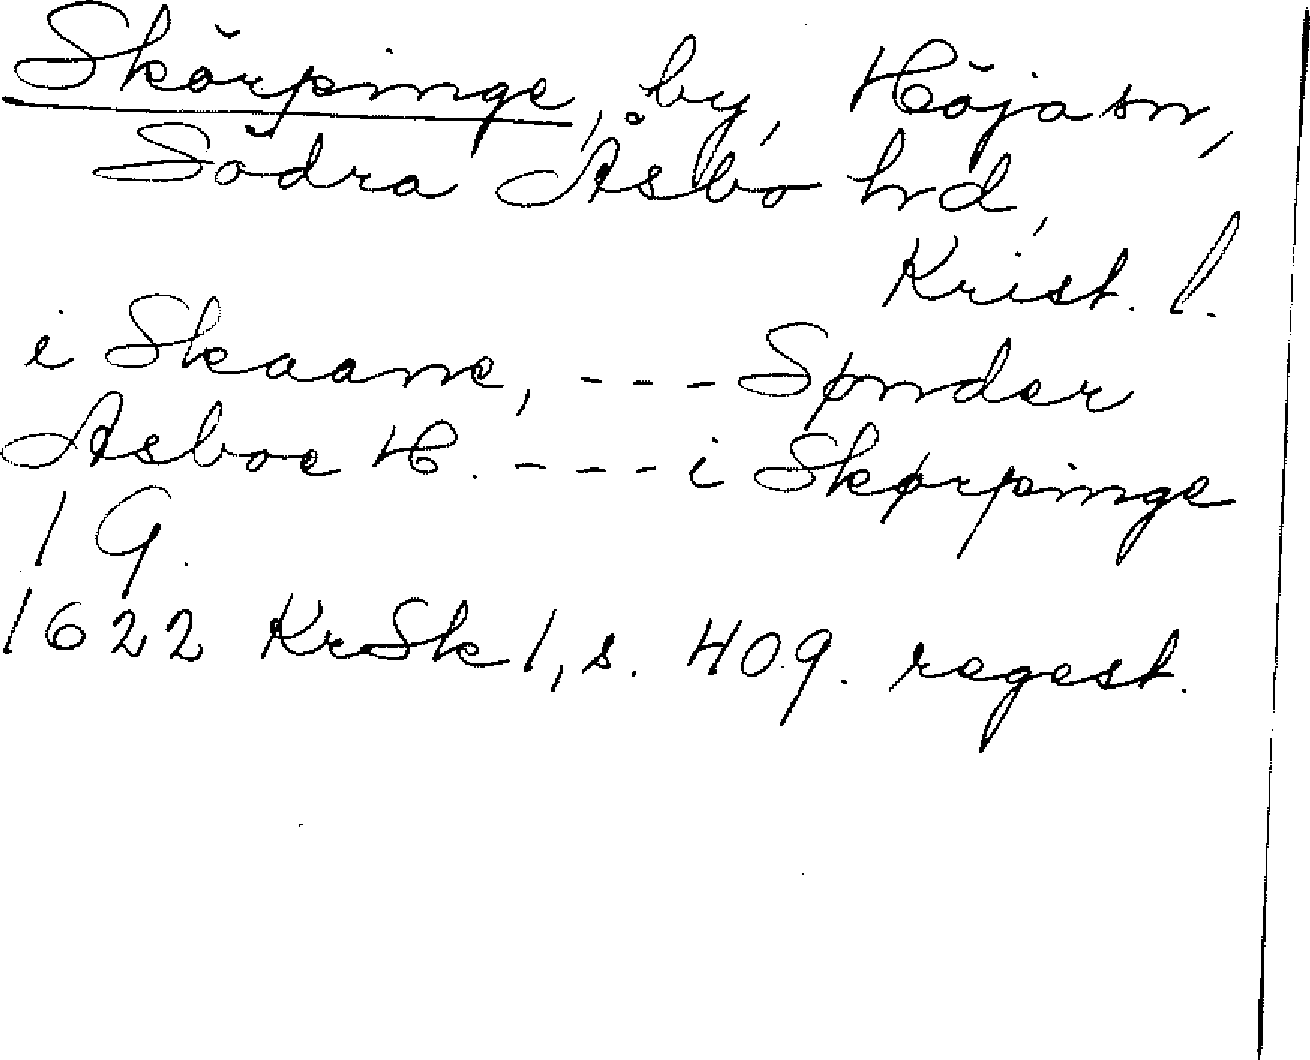 Skörpinge, by, Höja sn,
Södra Åsbo hrd,
Krist. l.
i Skaane, --- Sønder
Asboe H. ---- i Skørpinge
1 G.
1622 KrSk 1, s. 409. regest.